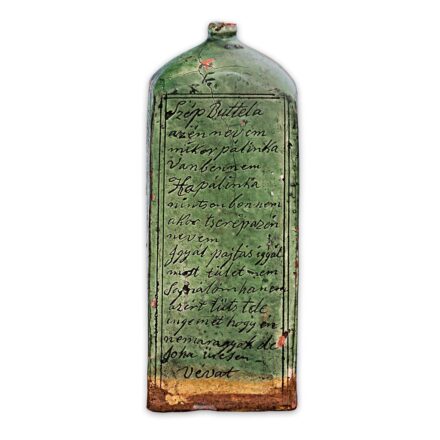 Szép Buttela
azén nevem
mikor pálinka
Vanbennem
Ha pálinka
nintsenbennem
akor tserépazén
nevem
Igyál pajtás igyál
most tület nem
Sajnálom hanem
azért tüts tele
ingemet hogy én
nemaragyak de
soha üresen
vévat